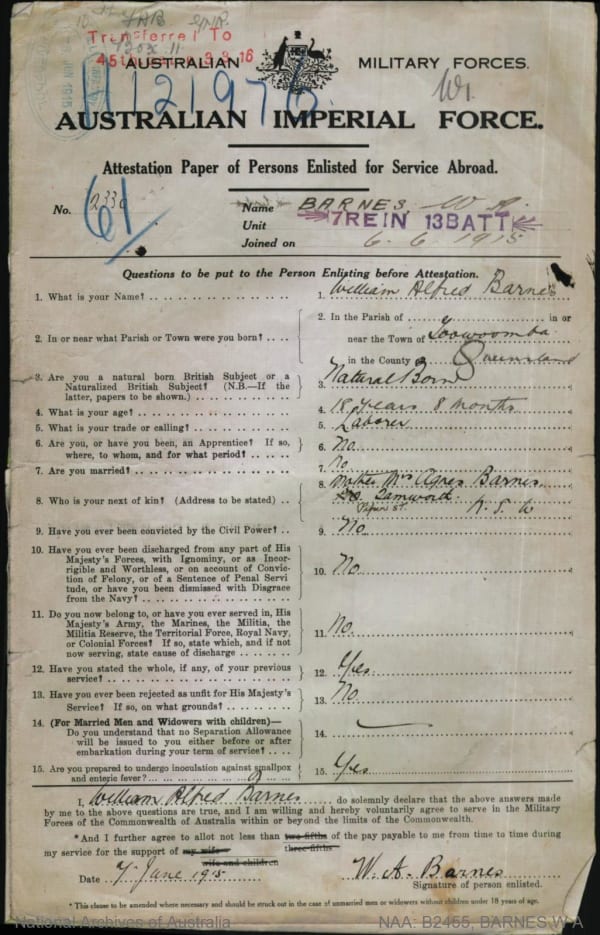 Transferred To
Box 11
45th 3 3 16
AUSTRALIAN MILITARY FORCES.
AUSTRALIAN IMPERIAL FORCE.
Attestation Paper of Persons Enlisted for Service Abroad.
No. 61 Name BARNES, W A.
Unit 7REIN 13BATT
Joined on 6. 6. 1915
Questions to be put to the Person Enlisting before Attestation.
1. What is your Name? 1. William Alfred Barnes
2. In or near what Parish or Town were you born? 2. In the Parish of in or
near the Town of Toowoomba
in the County of Queensland
3. Are you a natural born British Subject or a
Naturalized British Subject? (N.B.—If the
latter, papers to be shown.) 3. Natural Born
4. What is your age? 4. 18 Years 8 months
5. What is your trade or calling? 5. Laborer
6. Are you, or have you been, an Apprentice? If so,
where, to whom, and for what period? 6. No.
7. Are you married? 7. No
8. Who is your next of kin? (Address to be stated) 8. Mother Mrs Agnes Barnes
Tamworth.
N. S. W
9. Have you ever been convicted by the Civil Power? 9. No.
10. Have you ever been discharged from any part of His
Majesty's Forces, with Ignominy, or as Incor-
rigible and Worthless, or on account of Convic-
tion of Felony, or of a Sentence of Penal Servi
tude, or have you been Dismissed with Disgrace
from the Navy? 10. No.
11. Do you now belong to, or have you ever served in, His
Majesty's Army, the Marines, the Militia, the
Militia Reserve, the Territorial Force, Royal Navy,
or Colonial Forces? If so, state which, and if not
now serving, state cause of discharge 11. No.
12. Have you stated the whole, if any, of your previous
service? 12. Yes.
13. Have you ever been rejected as unfit for His Majesty's
Service? If so, on what grounds? 13. No.
14. (For Married Men and Widowers with children)—
Do you understand that no Separation Allowance
will be issued to you either before or after
embarkation during your term of service? 14.
15. Are you prepared to undergo inoculation against smallpox
and enteric fever? 15. Yes
I, William Alfred Barnes do solemnly declare that the above answers made
by me to the above questions are true, and I am willing and hereby voluntarily agree to serve in the Military
Forces of the Commonwealth of Australia within or beyond the limits of the Commonwealth.
*And I further agree to allot not less than two-fifths of the pay payable to me from time to time during
three-fifths
my service for the support of my wife
wife and children
Date 7 June 1915 W. A. Barnes
Signature of person enlisted.
* This clause to be amended where necessary and should be struck out in the case of unmarried men or widowers without children under 18 years of age.
National Archives of Australia NAA: B2455, BARNES W A